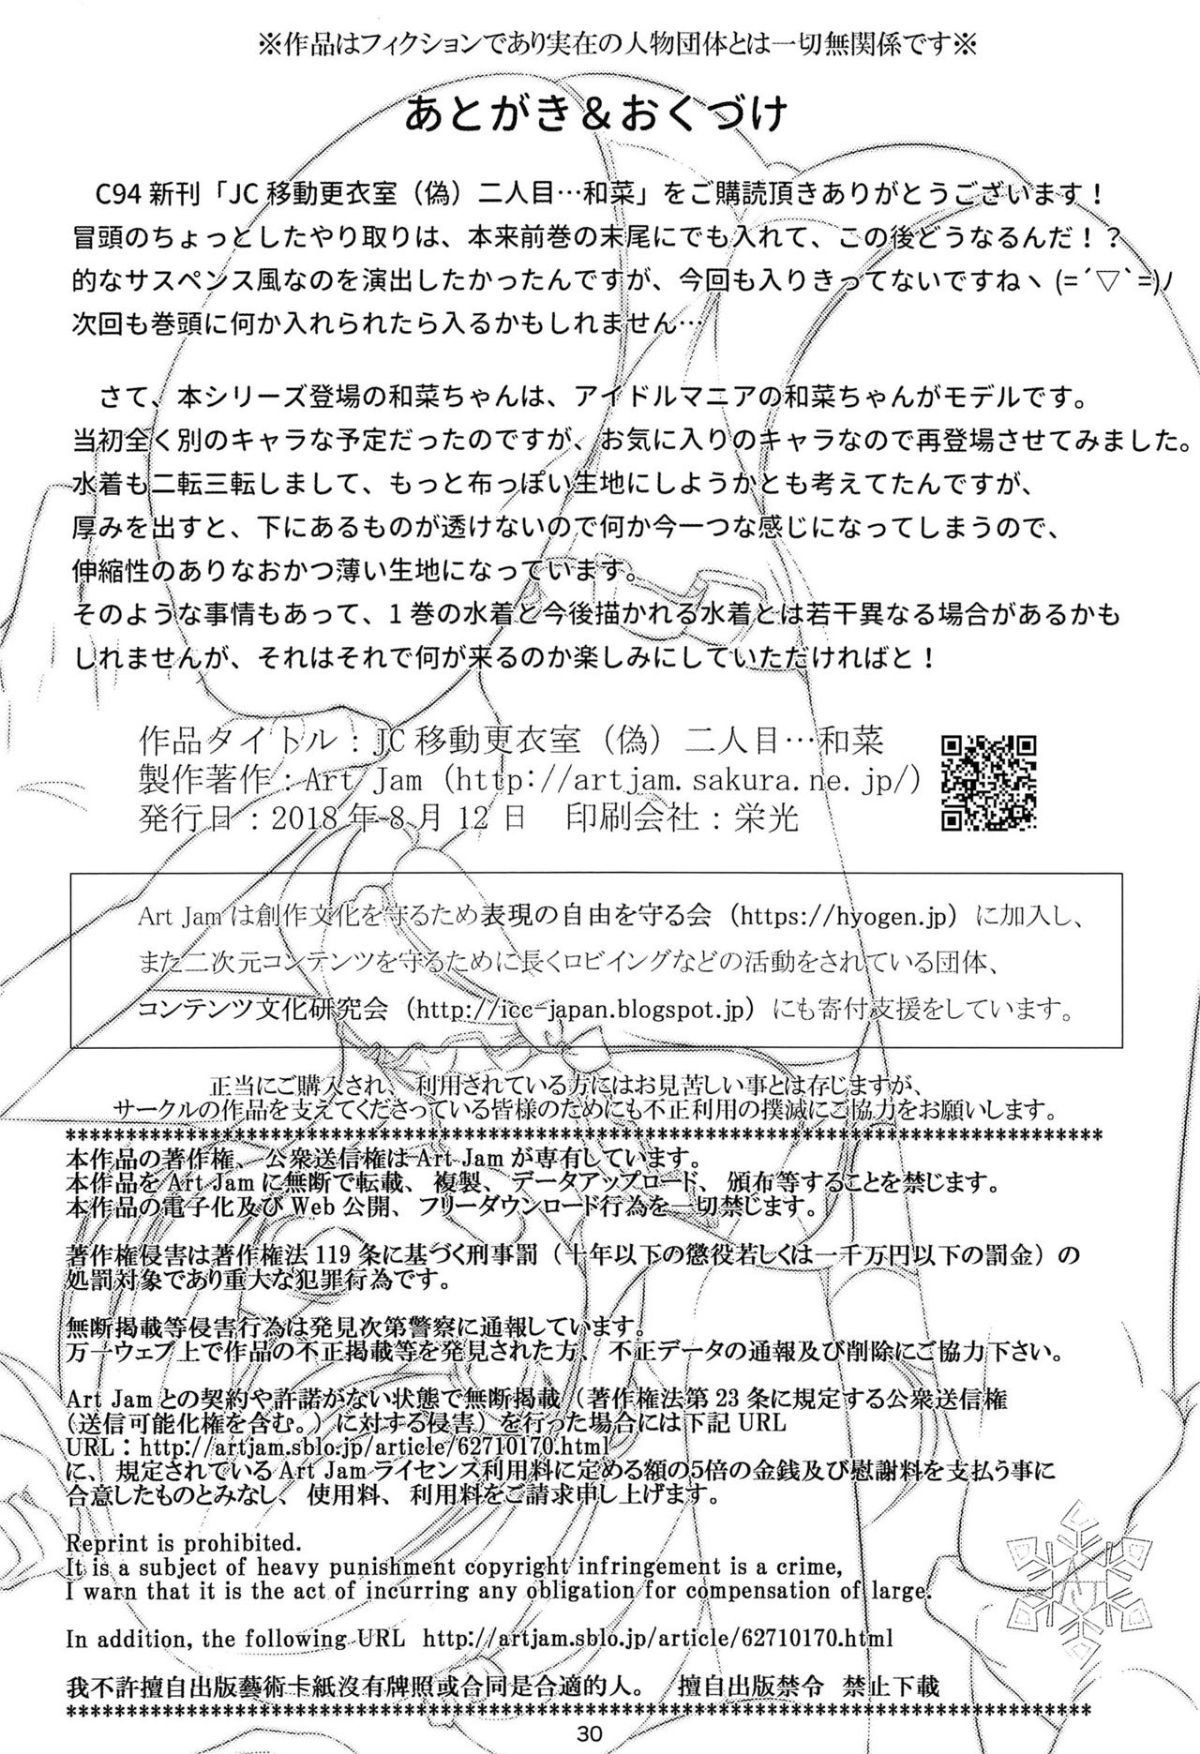 ※作品はフィクションであり実在の人物団体とは一切無関係です※
あとがき＆おくづけ
C94 新刊「JC 移動更衣室（偽）二人目…和菜」をご購読頂きありがとうございます！
冒頭のちょっとしたやり取りは、本来前巻の末尾にでも入れて、この後どうなるんだ！？
的なサスペンス風なのを演出したかったんですが、今回も入りきってないですねヽ(=´▽`=)ﾉ
次回も巻頭に何か入れられたら入るかもしれません…
さて、本シリーズ登場の和菜ちゃんは、アイドルマニアの和菜ちゃんがモデルです。
当初全く別のキャラな予定だったのですが、お気に入りのキャラなので再登場させてみました。
水着も二転三転しまして、もっと布っぽい生地にしようかとも考えてたんですが、
厚みを出すと、下にあるものが透けないので何か今一つな感じになってしまうので、
伸縮性のありなおかつ薄い生地になっています。
そのような事情もあって、1 巻の水着と今後描かれる水着とは若干異なる場合があるかも
しれませんが、それはそれで何が来るのか楽しみにしていただければと！
作品タイトル：JC 移動更衣室（偽）二人目…和菜
製作著作：Art Jam（http://artjam.sakura.ne.jp/）
発行日：2018 年 8 月 12 日　印刷会社：栄光
Art Jam は創作文化を守るため表現の自由を守る会（https://hyogen.jp）に加入し、
また二次元コンテンツを守るために長くロビイングなどの活動をされている団体、
コンテンツ文化研究会（http://icc-japan.blogspot.jp）にも寄付支援をしています。
正当にご購入され、利用されている方にはお見苦しい事とは存じますが、
サークルの作品を支えてくださっている皆様のためにも不正利用の撲滅にご協力をお願いします。
****************************************************************************************
本作品の著作権、公衆送信権は Art Jam が専有しています。
本作品を Art Jam に無断で転載、複製、データアップロード、頒布等することを禁じます。
本作品の電子化及び Web 公開、フリーダウンロード行為を一切禁じます。
著作権侵害は著作権法 119 条に基づく刑事罰（十年以下の懲役若しくは一千万円以下の罰金）の
処罰対象であり重大な犯罪行為です。
無断掲載等侵害行為は発見次第警察に通報しています。
万一ウェブ上で作品の不正掲載等を発見された方、不正データの通報及び削除にご協力下さい。
Art Jam との契約や許諾がない状態で無断掲載（著作権法第 23 条に規定する公衆送信権
（送信可能化権を含む。）に対する侵害）を行った場合には下記 URL
URL：http://artjam.sblo.jp/article/62710170.html
に、規定されている Art Jam ライセンス利用料に定める額の5倍の金銭及び慰謝料を支払う事に
合意したものとみなし、使用料、利用料をご請求申し上げます。
Reprint is prohibited.
It is a subject of heavy punishment copyright infringement is a crime,
I warn that it is the act of incurring any obligation for compensation of large.
In addition, the following URL http://artjam.sblo.jp/article/62710170.html
我不許擅自出版藝術卡紙沒有牌照或合同是合適的人。　擅自出版禁令　禁止下載
****************************************************************************************
30